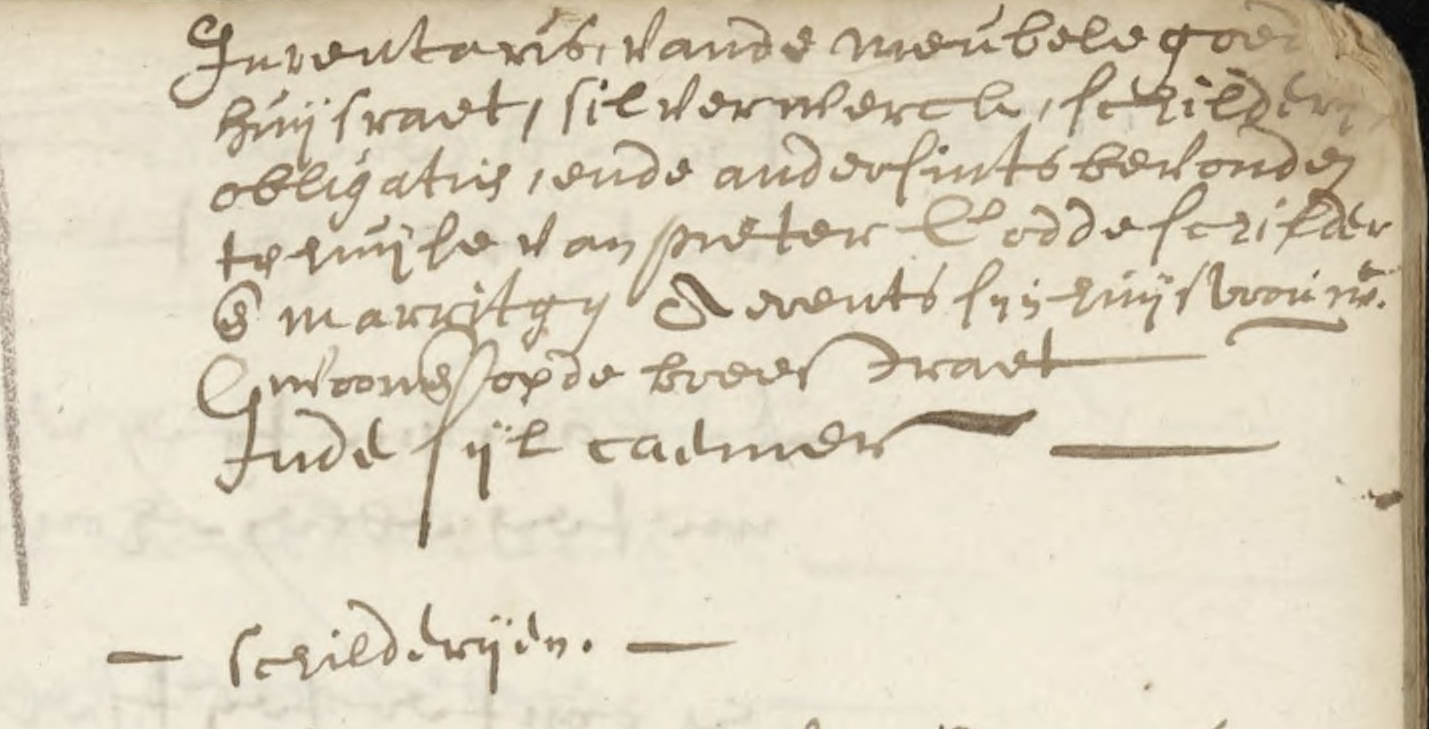 Inventaris, vande meubele goed
huijsraet, silverwerck, schildery
obligatie, ende andersints bevonden
te huijse van pieter Codde schilder
E marritgy Aerents sijn huijsvrouw.
woone opde breestraet
Inde sijl caemer
— schilderijen. —